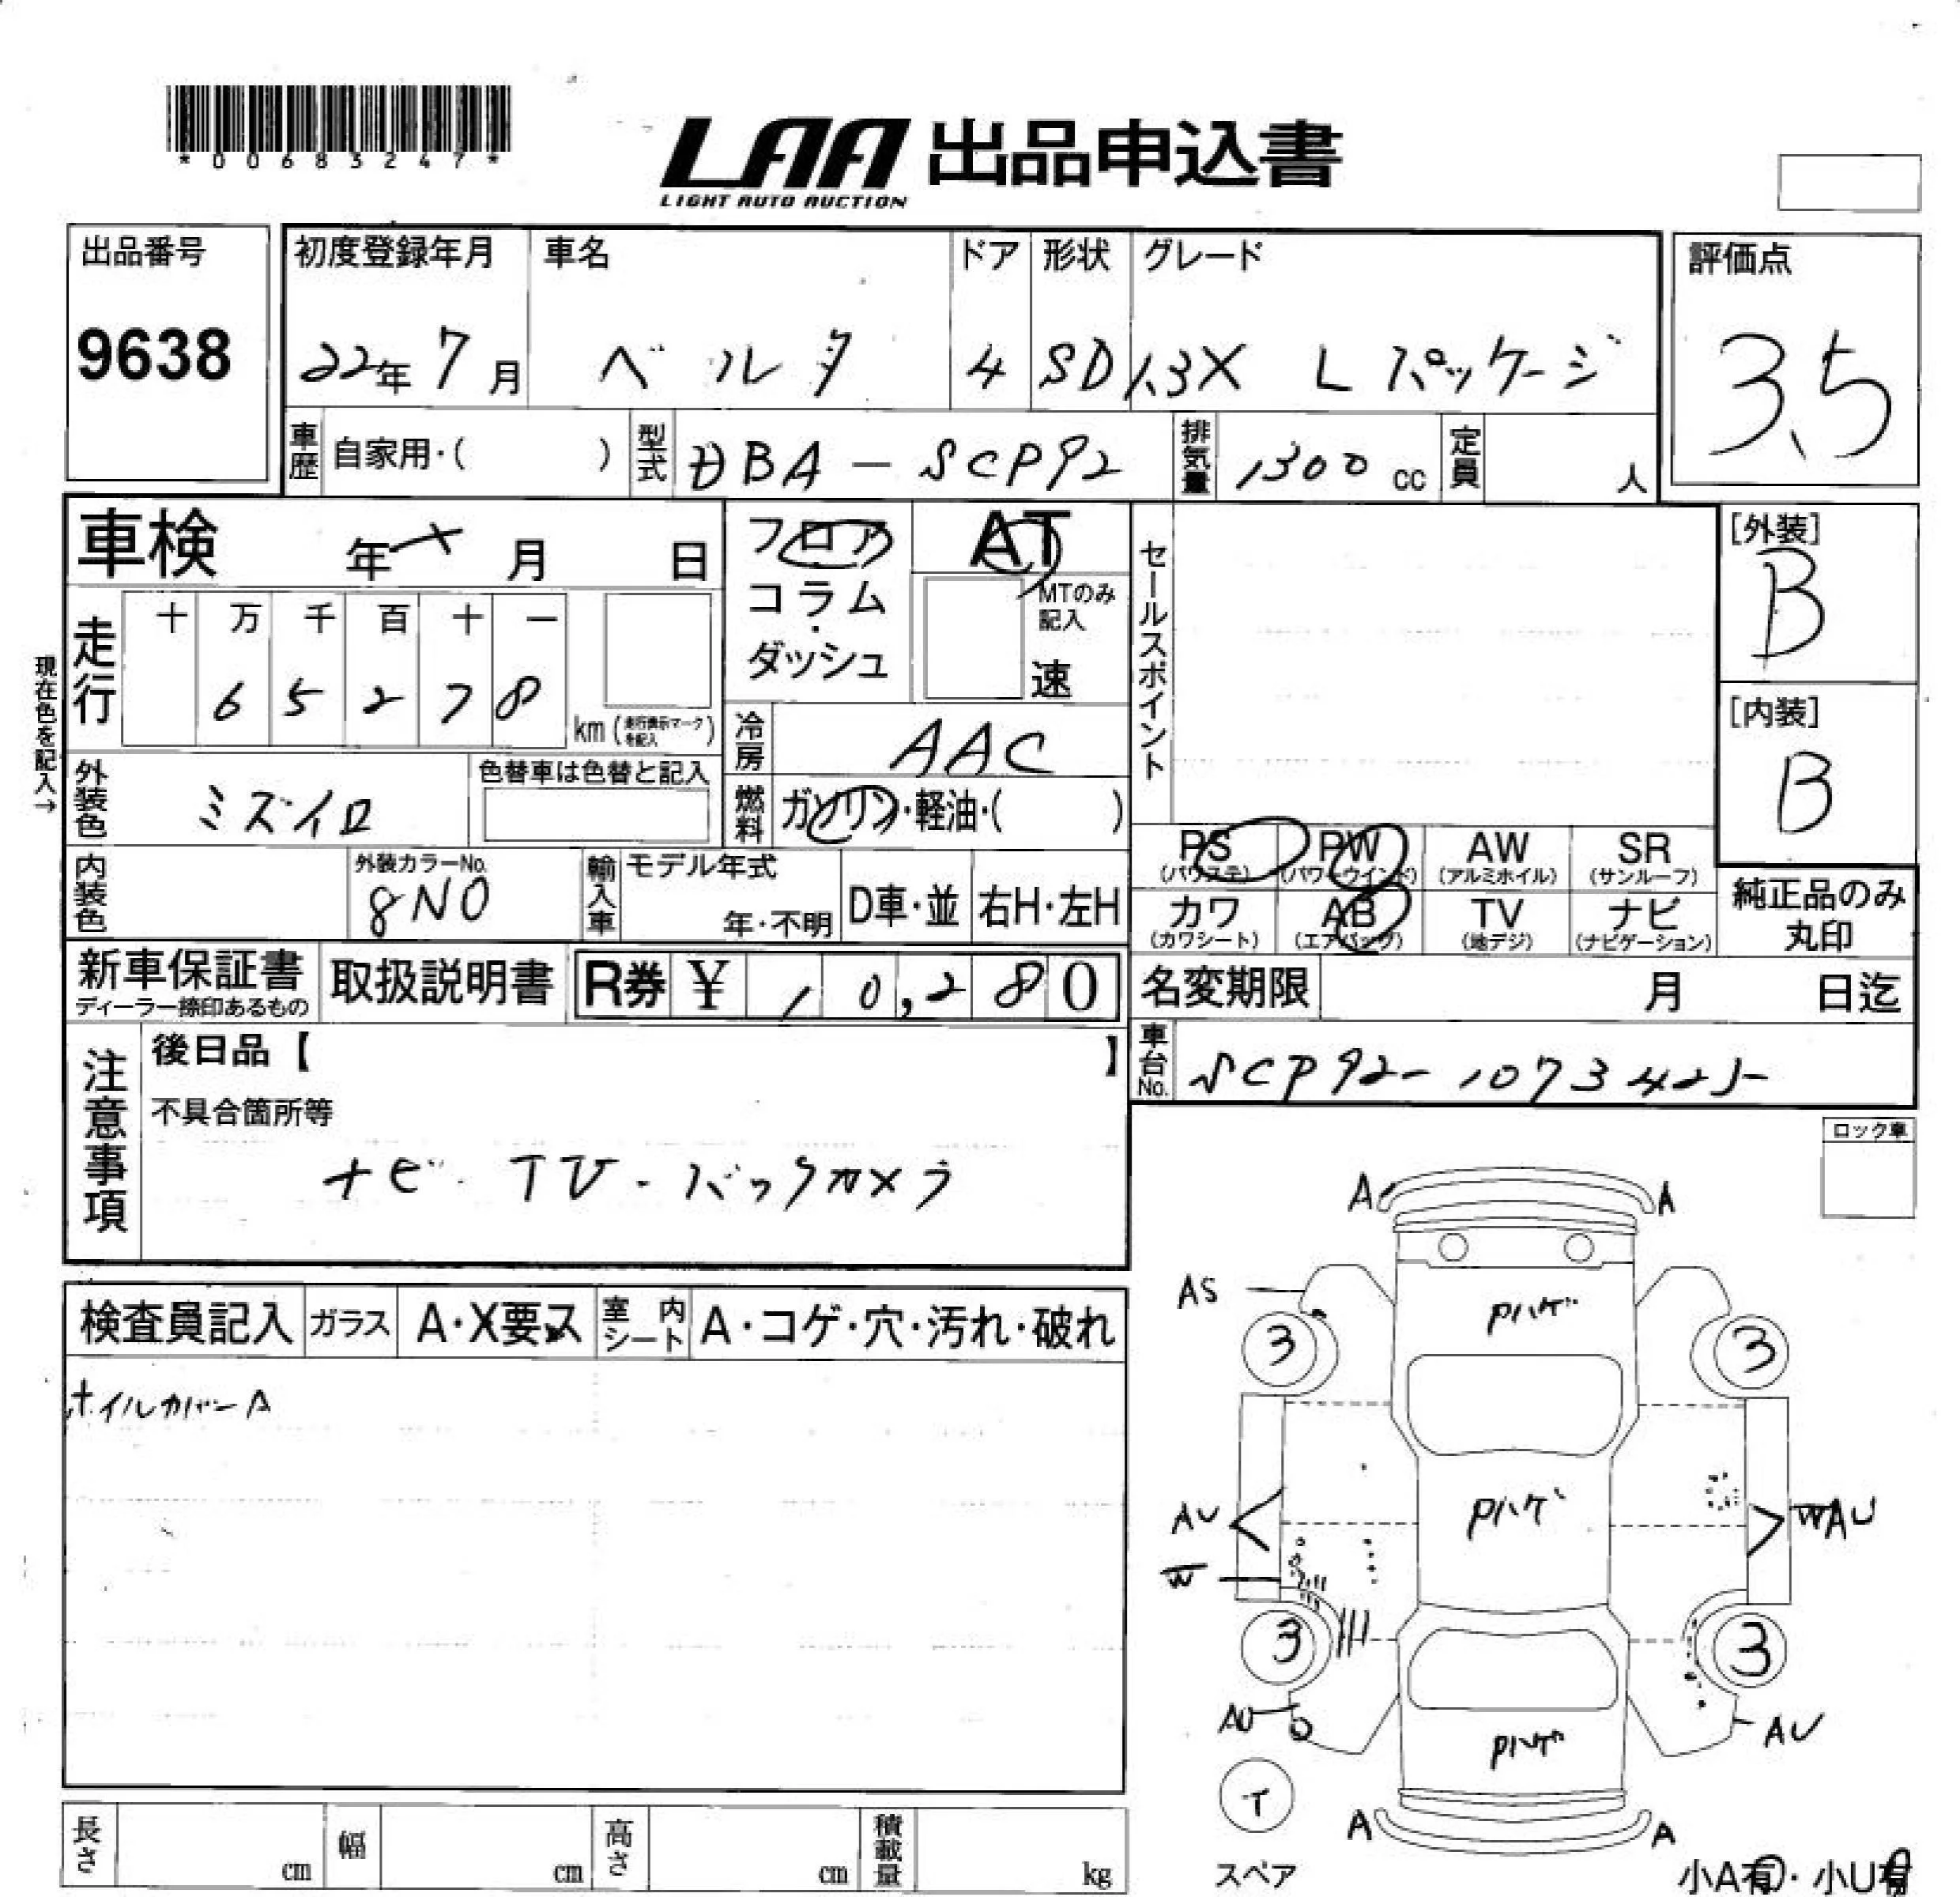 *00683247*
LAA 出品申込書
LIGHT AUTO AUCTION
出品番号
9638
初度登録年月 車名 ドア 形状 グレード
22年 7月 ベルタ 4 SD 1.3X L パッケージ
評価点
3.5
車歴 自家用・( ) 型式 DBA-SCP92 排気量 1300 cc 定員 人
車検 年 × 月 日
フロア
コラム
・
ダッシュ
AT
MTのみ
記入
速
セールスポイント
[外装]
B
[内装]
B
現在色を記入→
走行
十 万 千 百 十 一
6 5 2 7 8
km (走行表示マークを記入)
冷房 AAC
外装色 ミズイロ
色替車は色替と記入
燃料 ガソリン・軽油・( )
内装色
外装カラーNo.
8N0
輸入車 モデル年式
年・不明
D車・並 右H・左H
PS (パワステ) PW (パワーウインド) AW (アルミホイル) SR (サンルーフ)
カワ (カワシート) AB (エアバッグ) TV (地デジ) ナビ (ナビゲーション)
純正品のみ
丸印
新車保証書
ディーラー捺印あるもの
取扱説明書
R券 ¥ 10,280
名変期限 月 日迄
車台No. SCP92-1073425
注意事項
後日品【 】
不具合箇所等
ナビ・TV・バックカメラ
ロック車
検査員記入 ガラス A・X要ス 室内シート A・コゲ・穴・汚れ・破れ
ホイルカバーA
A A
AS
Pハゲ
3 3
AU Pハゲ WAU
W
3 3
AU Pハゲ AU
T
スペア
A A
小A有・小U有
長さ cm 幅 cm 高さ cm 積載量 kg